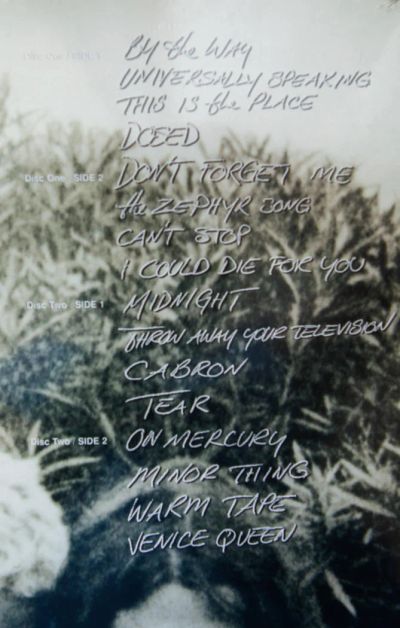 Disc One / SIDE 1 BY the WAY
UNIVERSALLY SPEAKING
THIS IS the PLACE
DOSED
Disc One / SIDE 2 DON'T FORGET ME
the ZEPHYR SONG
CAN'T STOP
I COULD DIE FOR YOU
Disc Two / SIDE 1 MIDNIGHT
THROW AWAY YOUR TELEVISION
CABRON
TEAR
Disc Two / SIDE 2 ON MERCURY
MINOR THING
WARM TAPE
VENICE QUEEN